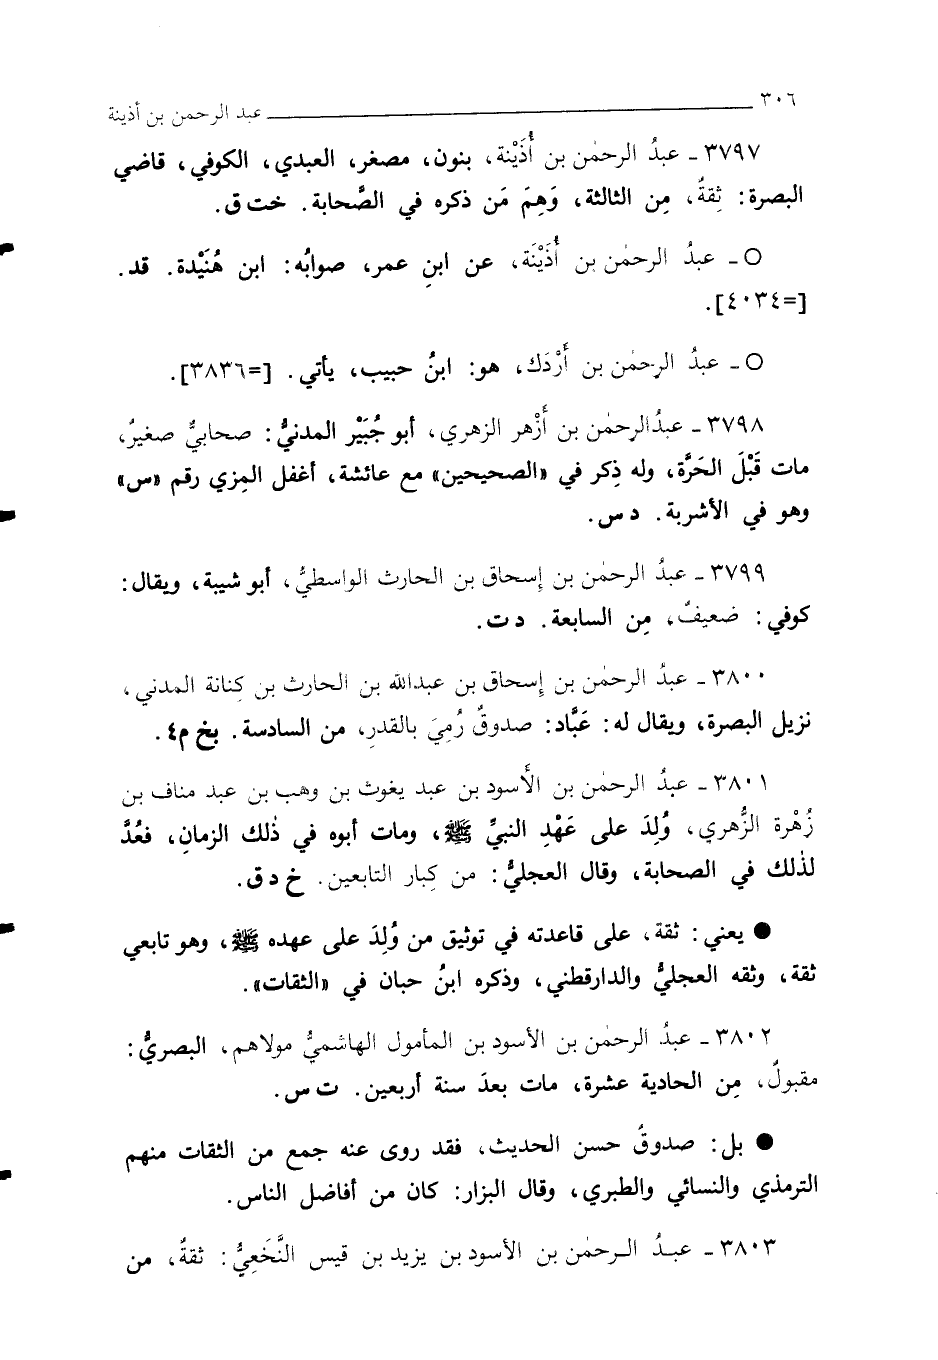 ٣٠٦ عبد الرحمن بن أذينة
٣٧٩٧ ـ عبدُ الرحمٰن بن أُذَيْنة، بنون، مصغر، العبدي، الكوفي، قاضي
البصرة: ثِقةٌ، مِن الثالثة، وَهِمَ مَن ذكره في الصَّحابة. خت ق.
○ ـ عبدُ الرحمٰن بن أُذَيْنَة، عن ابنِ عمر، صوابُه: ابن هُنَيْدة. قد.
[=٤٠٣٤].
○ ـ عبدُ الرحمٰن بن أَرْدَك، هو: ابنُ حبيب، يأتي. [=٣٨٣٦].
٣٧٩٨ ـ عبدُالرحمٰن بن أَزْهر الزهري، أبو جُبَيْر المدنيُّ: صحابيٌّ صغيرٌ،
مات قَبْلَ الحَرَّة، وله ذِكر في «الصحيحين» مع عائشة، أغفل المِزي رقم «س»
وهو في الأشربة. د س.
٣٧٩٩ ـ عبدُ الرحمٰن بن إسحاق بن الحارث الواسطيُّ، أبو شيبة، ويقال:
كوفي: ضعيفٌ، مِن السابعة. د ت.
٣٨٠٠ ـ عبدُ الرحمٰن بن إسحاق بن عبدالله بن الحارث بن كِنانة المدني،
نزيل البصرة، ويقال له: عَبَّاد: صدوقٌ رُمِيَ بالقدرِ، من السادسة. بخ م٤.
٣٨٠١ ـ عبدُ الرحمٰن بن الأَسود بن عبد يغوث بن وهب بن عبد مناف بن
زُهْرة الزُّهري، وُلِدَ على عَهْدِ النبيِّ ﷺ، ومات أبوه في ذٰلك الزمانِ، فعُدَّ
لذٰلك في الصحابة، وقال العجليُّ: من كِبار التابعين. خ د ق.
● يعني: ثقة، على قاعدته في توثيق من وُلِدَ على عهده ﷺ، وهو تابعي
ثقة، وثقه العجليُّ والدارقطني، وذكره ابنُ حبان في «الثقات».
٣٨٠٢ ـ عبدُ الرحمٰن بن الأسود بن المأمول الهاشميُّ مولاهم، البصريُّ:
مقبولٌ، مِن الحادية عشرة، مات بعدَ سنة أربعين. ت س.
● بل: صدوقٌ حسن الحديث، فقد روى عنه جمع من الثقات منهم
الترمذي والنسائي والطبري، وقال البزار: كان من أفاضل الناس.
٣٨٠٣ ـ عبـدُ الـرحمٰن بن الأسود بن يزيد بن قيس النَّخَعِيُّ: ثقةٌ، من